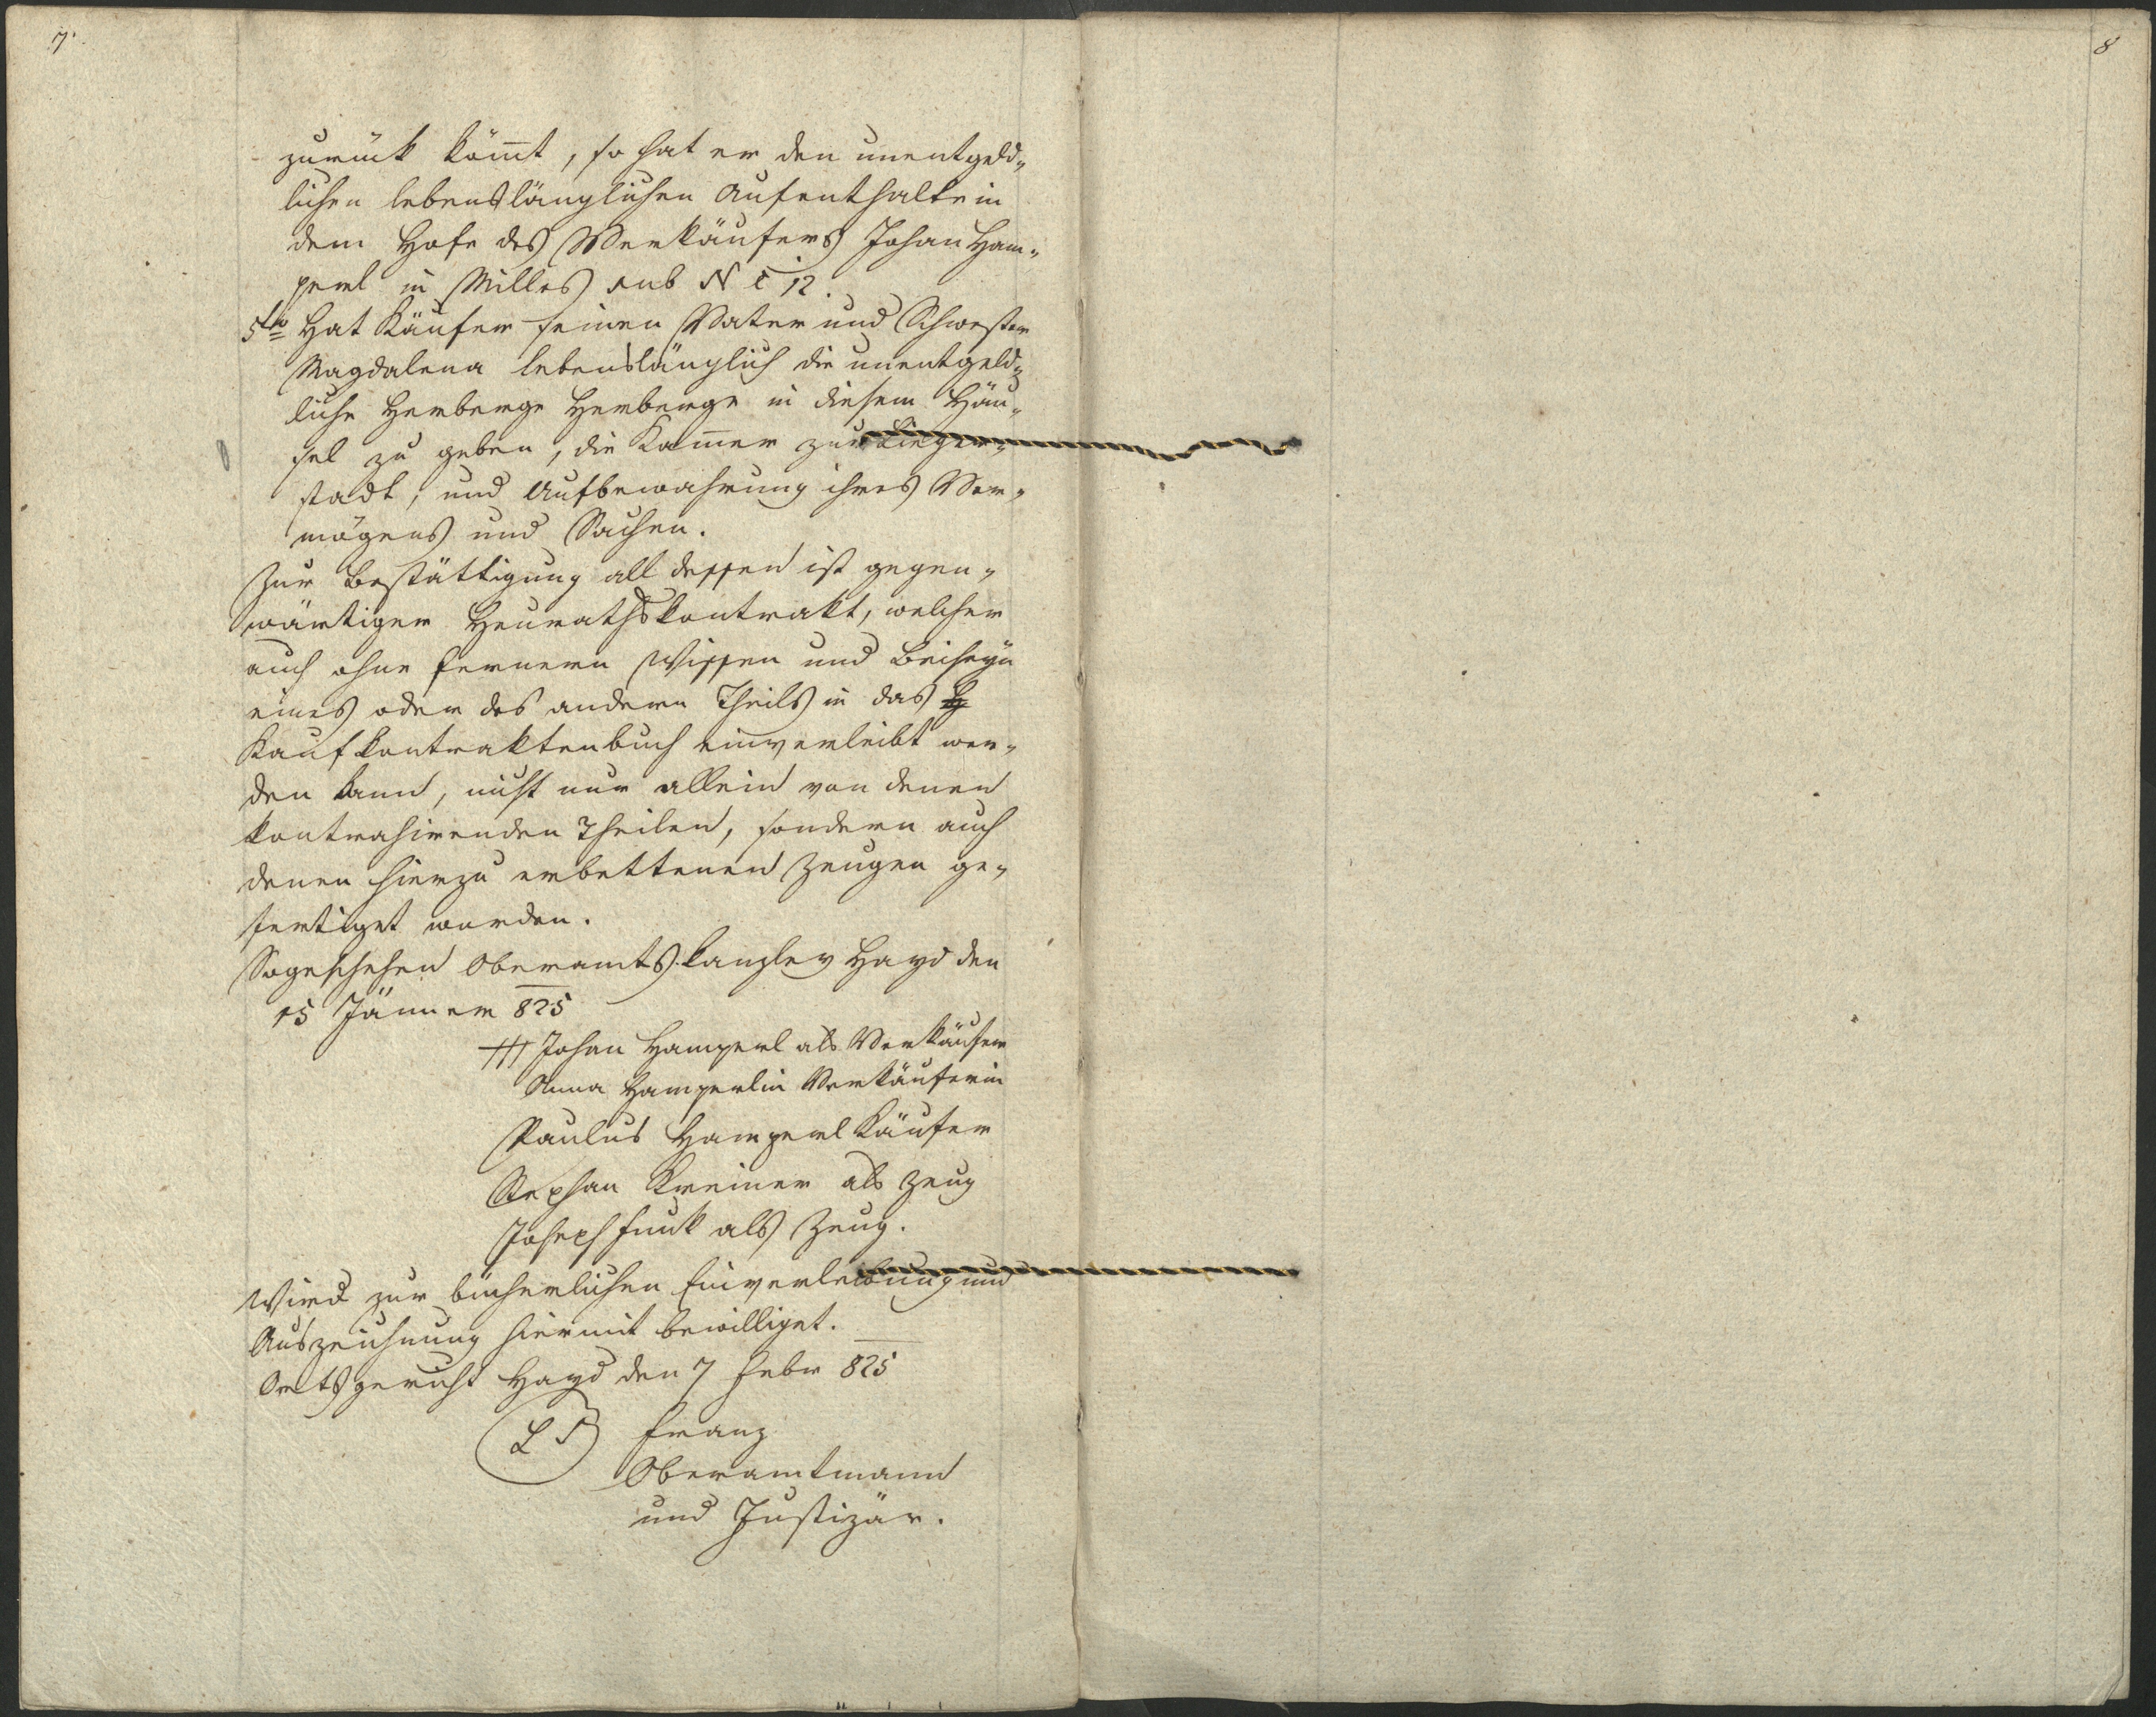 7.
8
zurück kom̅t, so hat er den unentgeld„
lichen lebenslänglichen Aufenthalt in
dem Hofe des Verkäufers Johan Ham„
perl in Milles sub N C 12.
5to Hat Käufer seinen Vater und Schwester
Magdalena lebenslänglich die unentgeld„
liche Herberge Herberge in diesem Häu„
sel zu geben, die Kam̅er zur Lieger„
stadt, und Aufbewahrung ihres Ver„
mögens und Sachen.
Zur Bestättigung all dessen ist gegen„
wärtiger Heurathskontrakt, welcher
auch ohne fernern Wissen und Beiseyn
eines oder des andern Theils in das
Kaufkontraktenbuch einverleibt wer„
den kann, nicht nur allein von denen
kontrahirenden Theilen, sondern auch
denen hierzu erbettenen Zeugen ge„
fertiget worden.
So geschehen Oberamtskanzley Hayd den
15 Jänner 825
+++ Johan Hamperl als Verkäufer
Anna Hamperlin Verkäuferin
Paulus Hamperl Käufer
Stephan Kreiner als Zeug
Joseph Funk als Zeug.
Wird zur bücherlichen Einverleibung und
Auszeichnung hiermit bewilliget.
Ortsgericht Hayd den 7 Febr 825
L S Franz
Oberamtmann
und Justizär.